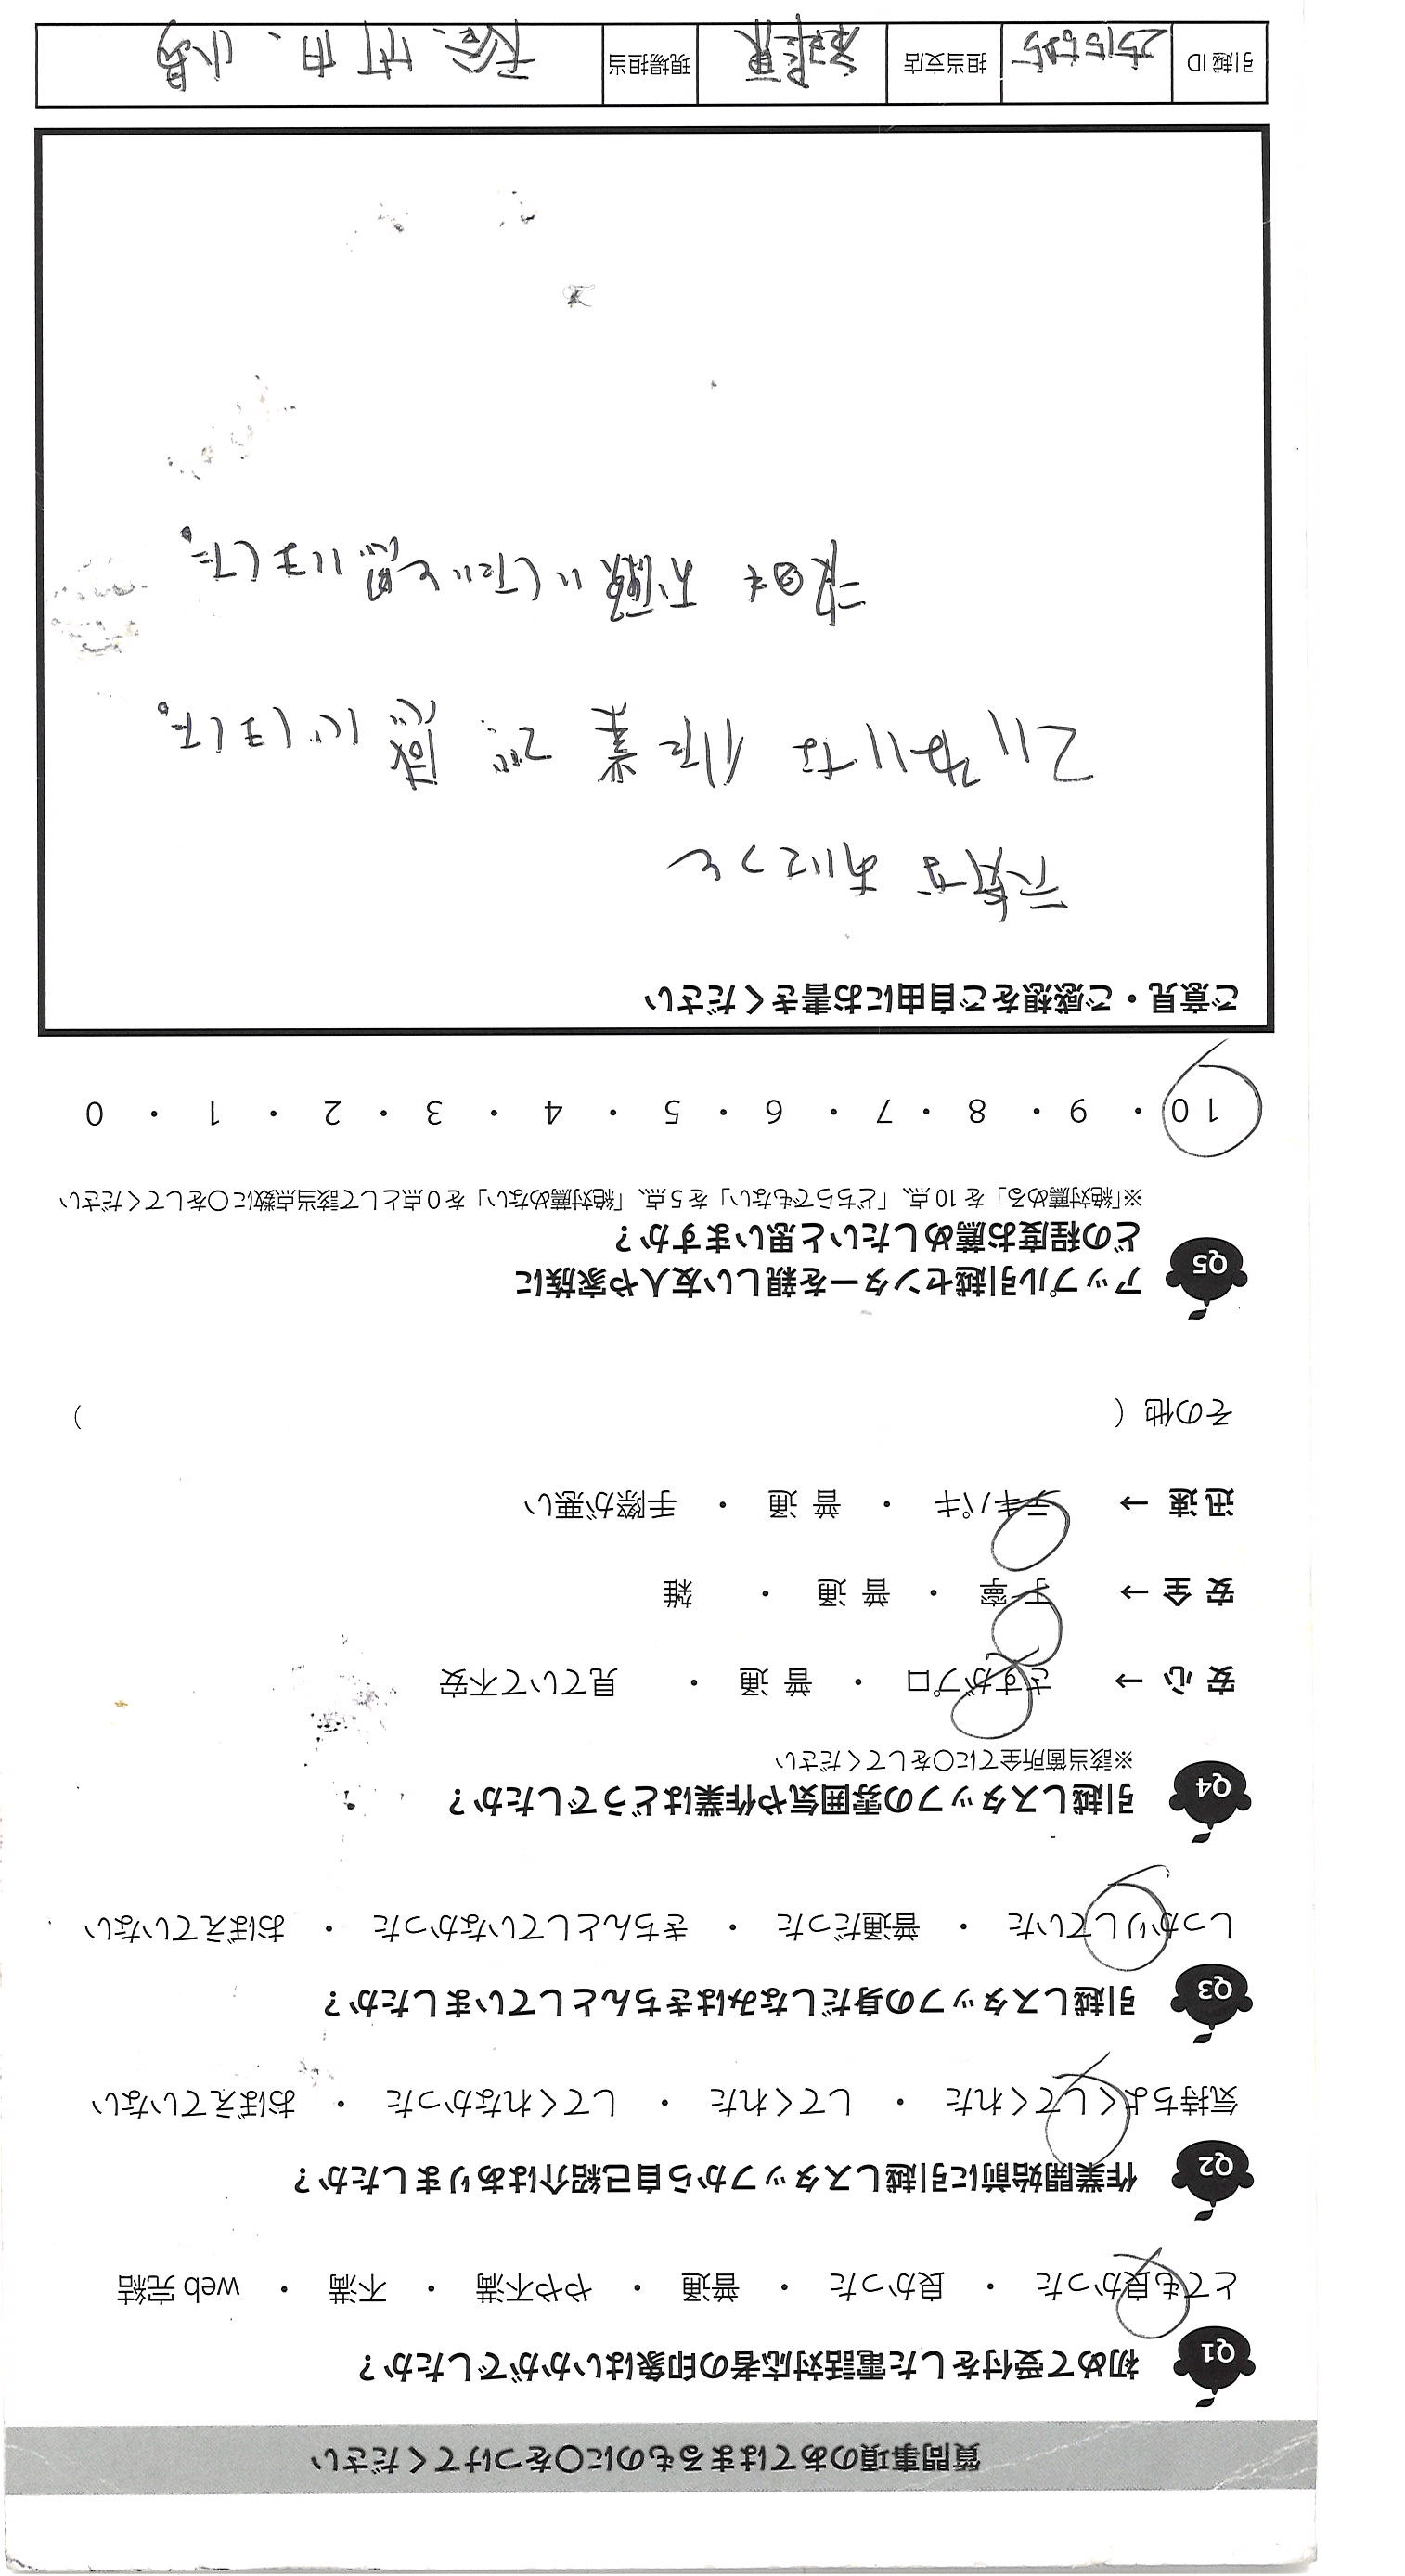 質問事項のあてはまるものに○をつけてください
Q1 初めて受付をした電話対応者の印象はいかがでしたか？
とても良かった ・ 良かった ・ 普通 ・ やや不満 ・ 不満 ・ web 完結
Q2 作業開始前に引越しスタッフから自己紹介はありましたか？
気持ちよくしてくれた ・ してくれた ・ してくれなかった ・ おぼえていない
Q3 引越しスタッフの身だしなみはきちんとしていましたか？
しっかりしていた ・ 普通だった ・ きちんとしていなかった ・ おぼえていない
Q4 引越しスタッフの雰囲気や作業はどうでしたか？
※該当箇所全てに○をしてください
安 心 → さすがプロ ・ 普 通 ・ 見ていて不安
安 全 → 丁寧 ・ 普 通 ・ 雑
迅 速 → テキパキ ・ 普 通 ・ 手際が悪い
その他（ ）
Q5 アップル引越センターを親しい友人や家族に
どの程度お薦めしたいと思いますか？
※「絶対薦める」を 10 点、「どちらでもない」を 5 点、「絶対薦めない」を 0 点として該当点数に○をしてください
10 ・ 9 ・ 8 ・ 7 ・ 6 ・ 5 ・ 4 ・ 3 ・ 2 ・ 1 ・ 0
ご意見・ご感想をご自由にお書きください
元気な あいさつと
ていねいな 作業で 感心しました。
次回も お願いしたいと思いました。
引越 ID 担当支店 現場担当 竹内、小島